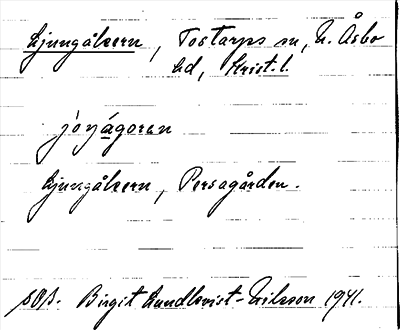 Ljungåkern, Tostarps sn, N. Åsbo
hd, Krist. l.
joŋágoran
Ljungåkern, Persagården.
SOA. Birgit Lundkvist-Nilsson 1941.